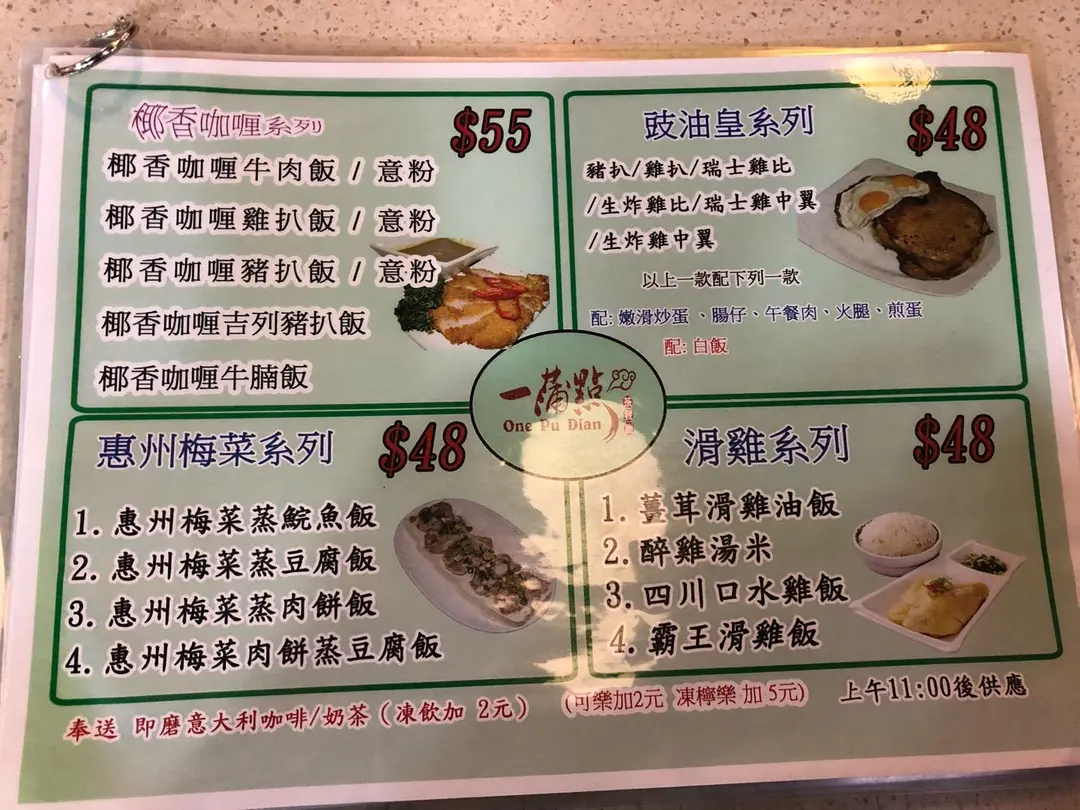 椰香咖喱系列 $55
椰香咖喱牛肉飯 / 意粉
椰香咖喱雞扒飯 / 意粉
椰香咖喱豬扒飯 / 意粉
椰香咖喱吉列豬扒飯
椰香咖喱牛腩飯
豉油皇系列 $48
豬扒/雞扒/瑞士雞比
/生炸雞比/瑞士雞中翼
/生炸雞中翼
以上一款配下列一款
配: 嫩滑炒蛋、腸仔、午餐肉、火腿、煎蛋
配: 白飯
一蒲點
One Pu Dian
惠州梅菜系列 $48
1. 惠州梅菜蒸鯇魚飯
2. 惠州梅菜蒸豆腐飯
3. 惠州梅菜蒸肉餅飯
4. 惠州梅菜肉餅蒸豆腐飯
滑雞系列 $48
1. 薑茸滑雞油飯
2. 醉雞湯米
3. 四川口水雞飯
4. 霸王滑雞飯
奉送 即磨意大利咖啡/奶茶 (凍飲加 2元) (可樂加2元 凍檸樂 加 5元) 上午11:00後供應